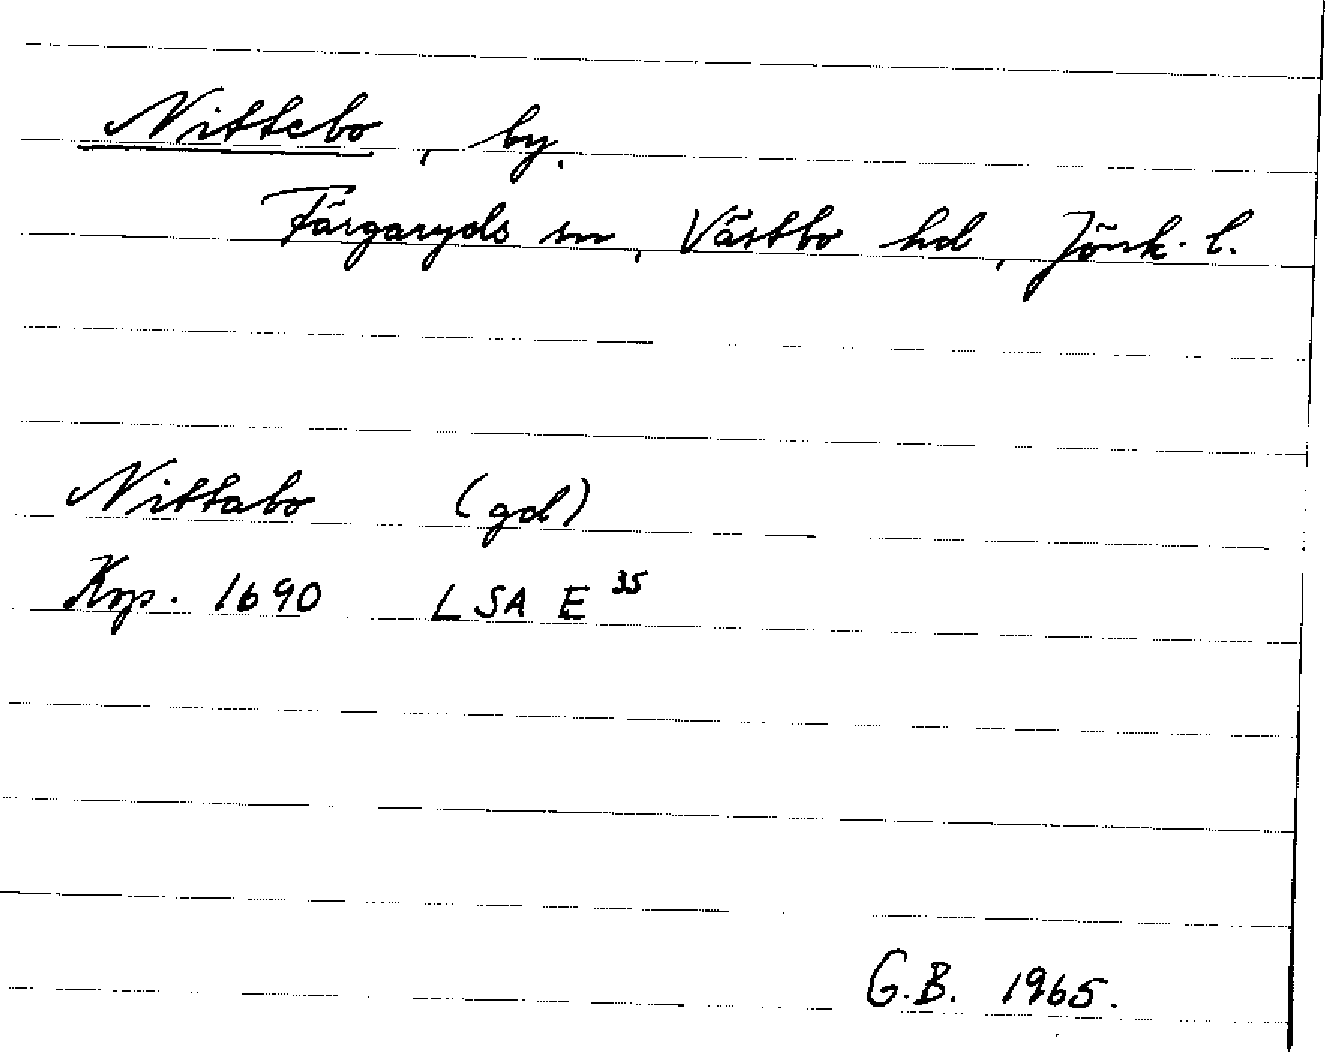 Nittebo, by.
Färgaryds sn, Västbo hd, Jönk. l.
Nittabo (gd)
Kop. 1690 LSA E 35
G.B. 1965.